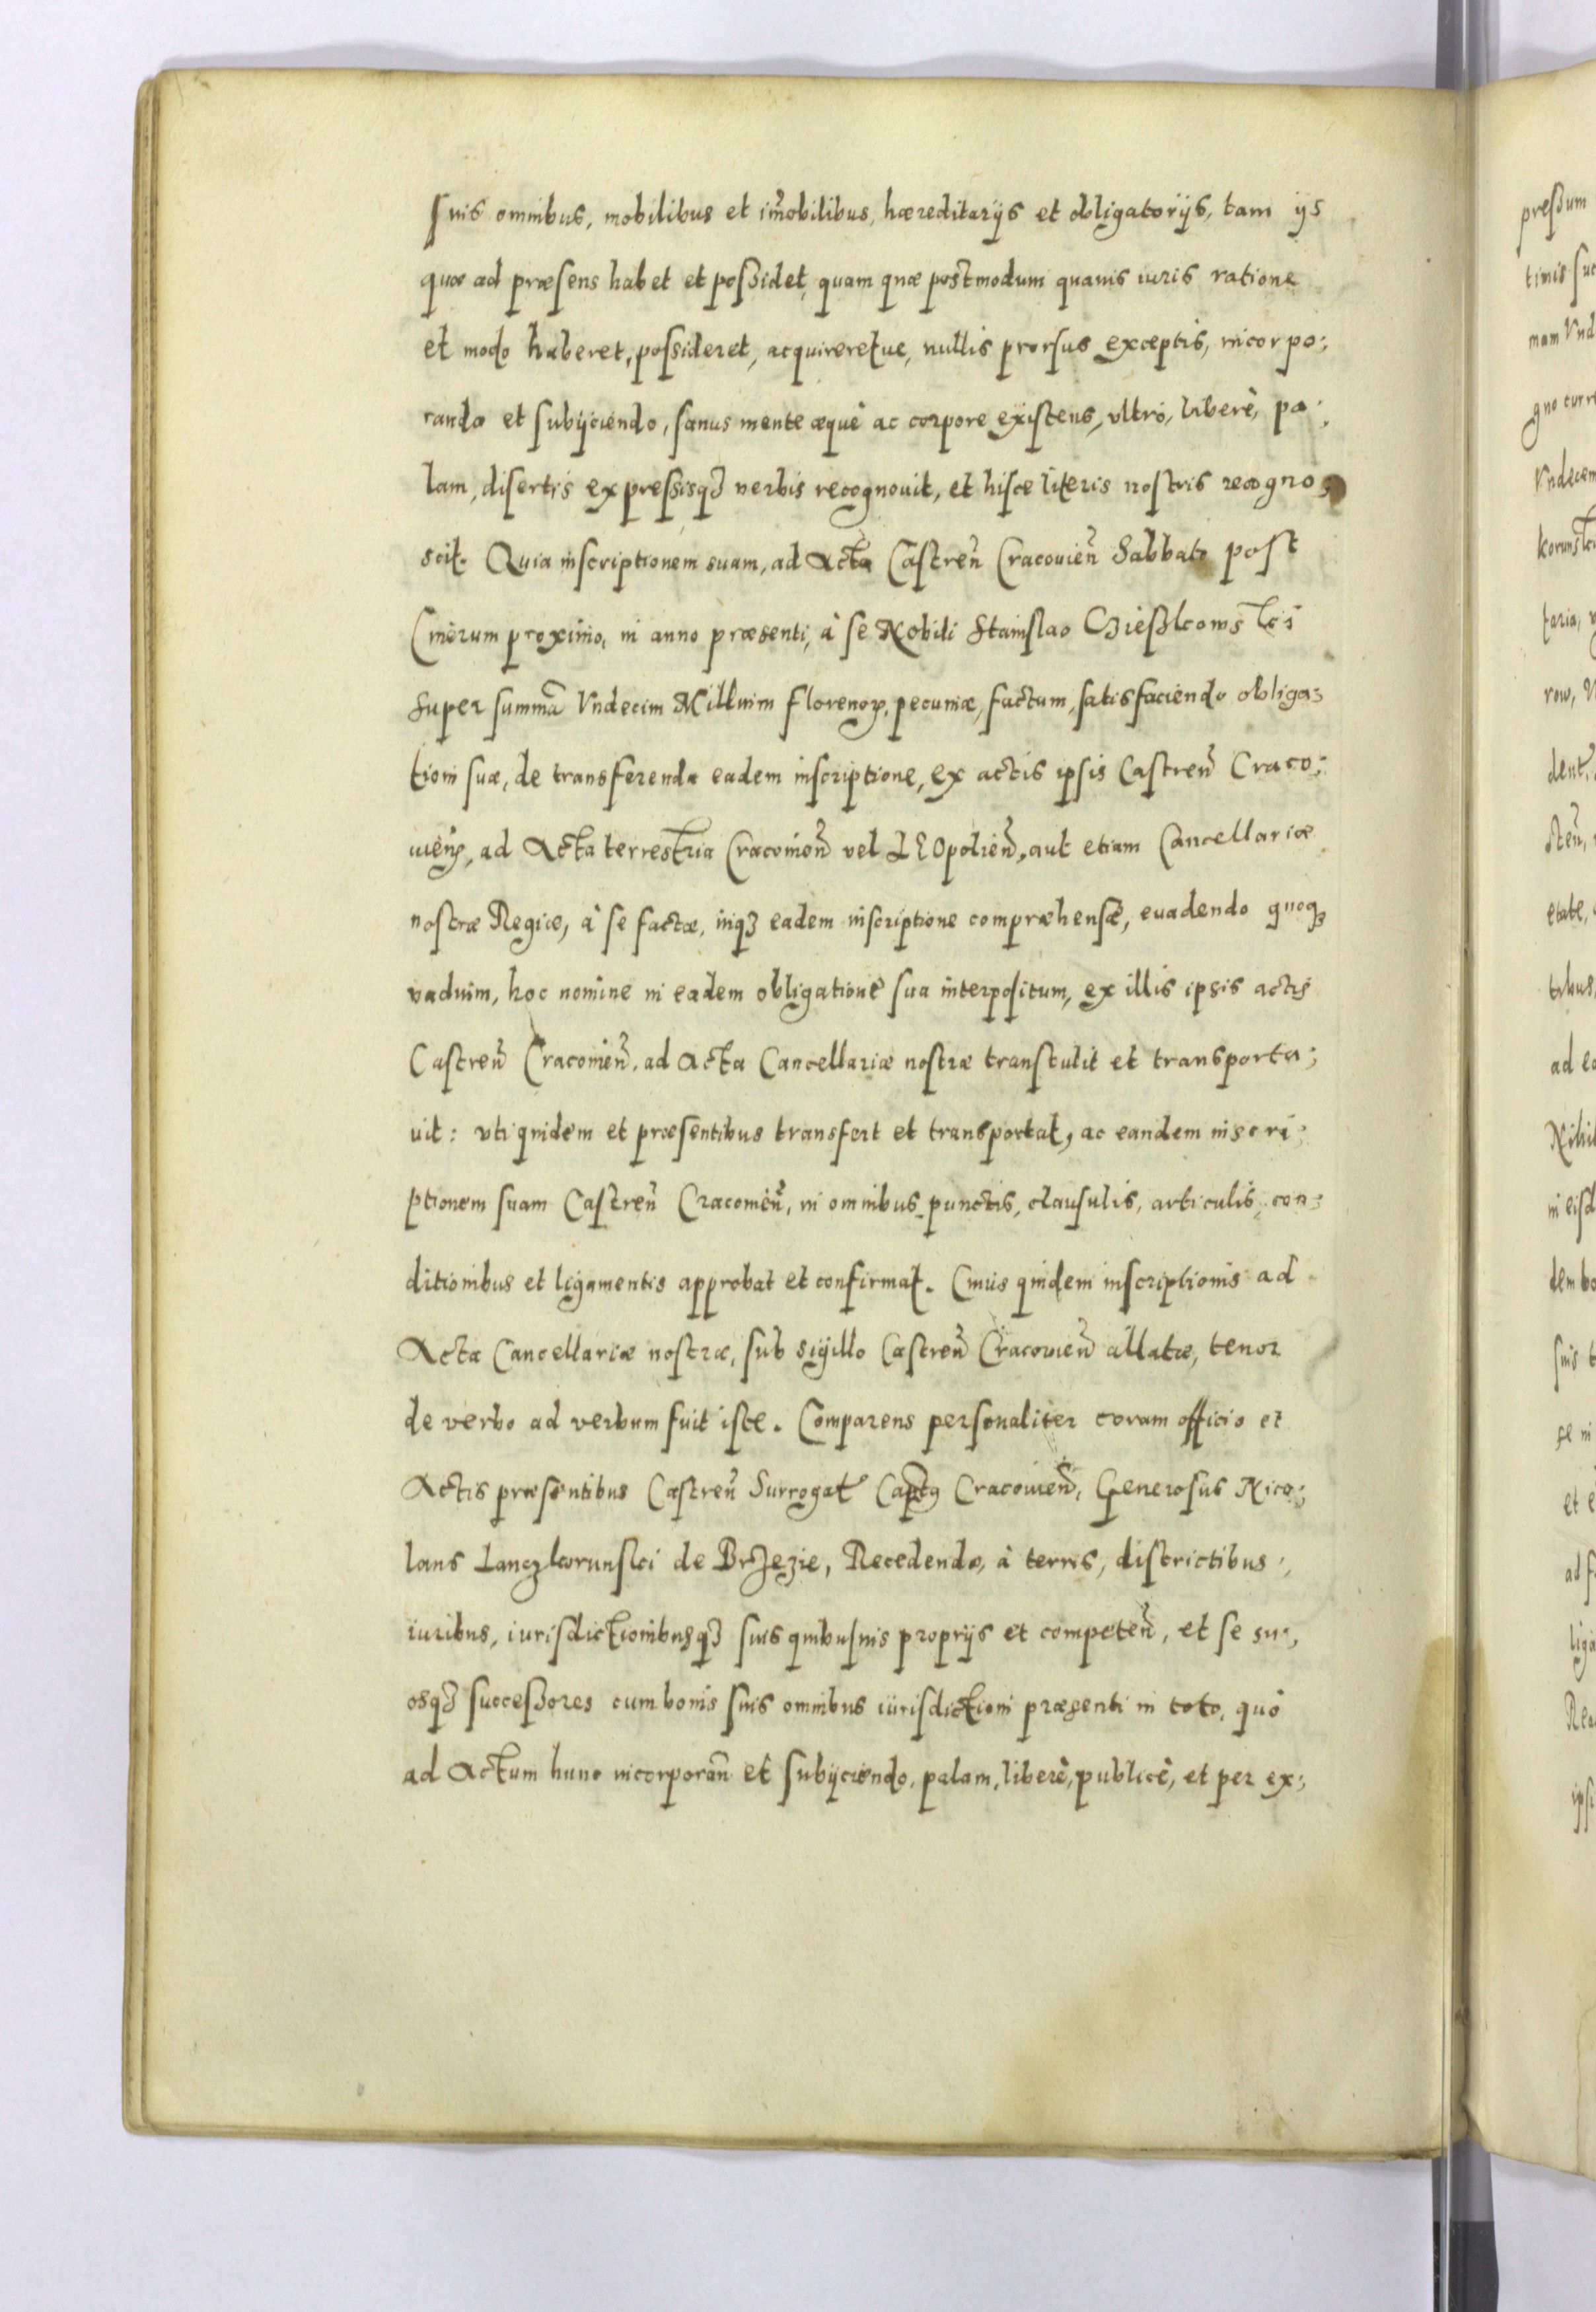 suis omnibus, mobilibus et im̃obilibus, hæreditarijs et obligatorijs, tam ijs
quæ ad præsens habet et poßidet, quam quæ postmodum quauis iuris ratione
et modo haberet, possideret, acquireretue, nullis prorsus exceptis, incorpo:
rando et subijciendo, sanus mente æquè ac corpore existens, vltrò, liberè, pa:
lam, disertis expressisqȝ verbis recognouit, et hisce literis nostris recogno:
scit. Quia inscriptionem suam, ad Acta Castreñ Cracouieñ Sabbato post
Cinerum proximo, in anno præsenti, à se Nobili Stanislao Czießkowski
super summã Vndecim Millium florenoꝝ, pecuniæ, factum, satisfaciendo obliga:
tioni suæ, de transferenda eadem inscriptione, ex actis ipsis Castreñ Craco:
uieñ, ad Acta terrestria Cracouieñ vel LEOpolieñ, aut etiam Cancellariæ
nostræ Regiæ, à se factæ, inqȝ eadem inscriptione compræhensæ, euadendo quoqȝ
vadium, hoc nomine in eadem obligatione sua interpositum, ex illis ipsis actis
Castreñ Cracouieñ, ad Acta Cancellariæ nostræ transtulit et transporta:
uit: vti quidem et præsentibus transfert et transportat, ac eandem inscri:
ptionem suam Castreñ Cracouieñ, in omnibus punctis, clausulis, articulis, con:
ditionibus et ligamentis approbat et confirmat. Cuius quidem inscriptionis ad
Acta Cancellariæ nostræ, sub sigillo Castreñ Cracouieñ allatæ, tenor
de verbo ad verbum fuit iste. Comparens personaliter coram officio et
Actis præsentibus Castreñ Surrogat Capt̃ Cracouieñ, Generosus Nico:
laus Lanczkorunski de Brzezie, Recedendo, à terris, districtibus,
iuribus, iurisdictionibusqȝ suis quibusuis proprijs et competeñ, et se su:
osqȝ succeßores cum bonis suis omnibus iurisdictioni præsenti in toto, quò
ad Actum hunc incorporañ et subijciendo, palam, liberè, publicè, et per ex: